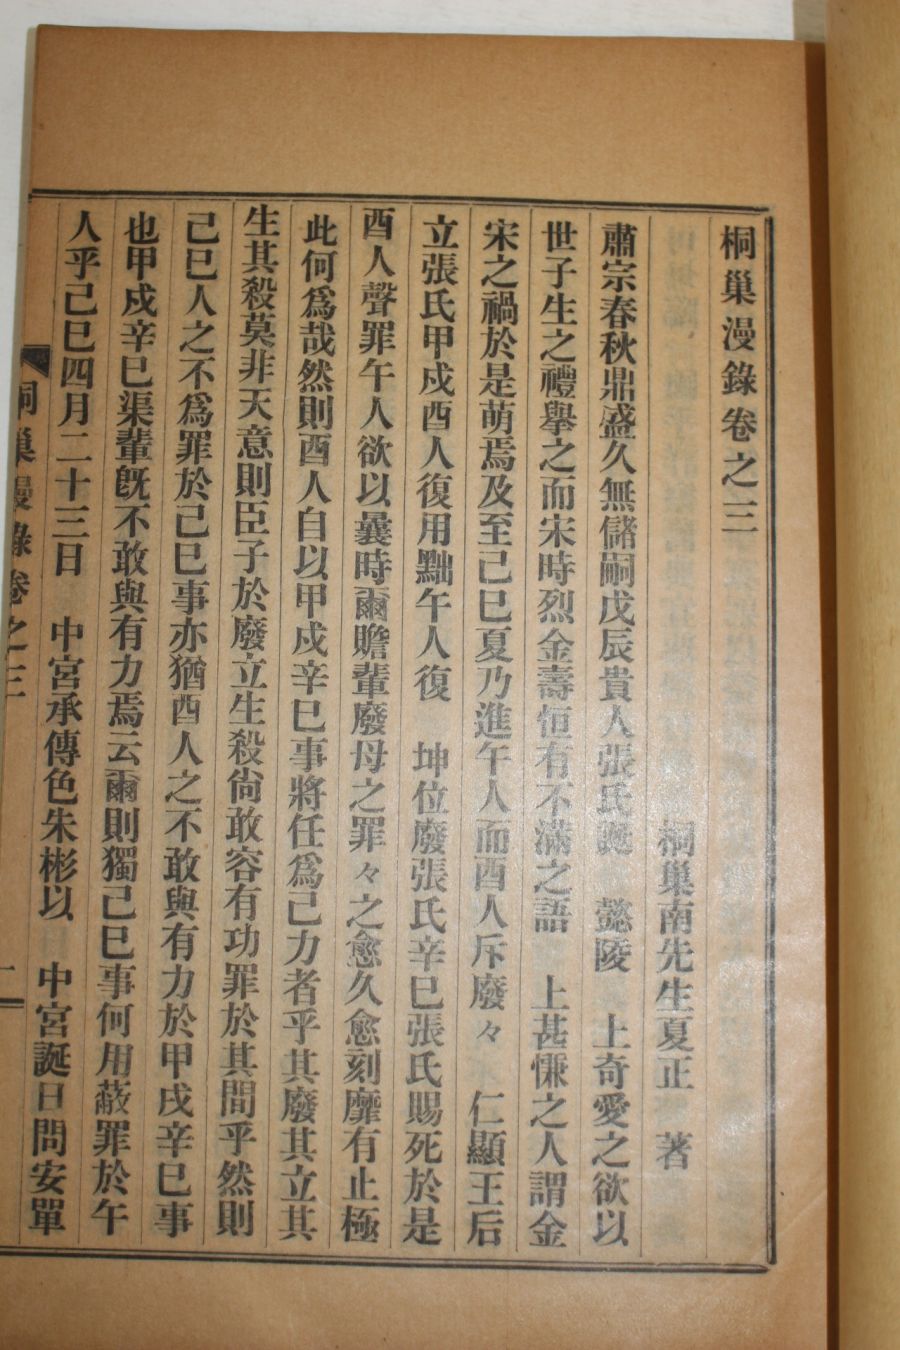 桐巢漫錄卷之三
桐巢南先生夏正　著
肅宗春秋鼎盛久無儲嗣戊辰貴人張氏誕　懿陵　上奇愛之欲以
世子生之禮擧之而宋時烈金壽恒有不滿之語　上甚慊之人謂金
宋之禍於是萌焉及至己巳夏乃進午人而酉人斥廢々　仁顯王后
立張氏甲戍酉人復用黜午人復　坤位廢張氏辛巳張氏賜死於是
酉人聲罪午人欲以曩時爾瞻輩廢母之罪々之愈久愈刻靡有止極
此何爲哉然則酉人自以甲戍辛巳事將任爲己力者乎其廢其立其
生其殺莫非天意則臣子於廢立生殺尙敢容有功罪於其間乎然則
己巳人之不爲罪於己巳事亦猶酉人之不敢與有力於甲戍辛巳事
也甲戍辛巳渠輩旣不敢與有力焉云爾則獨己巳事何用蔽罪於午
人乎己巳四月二十三日　中宮承傳色朱彬以　中宮誕日問安單
桐巢漫錄卷之三
一